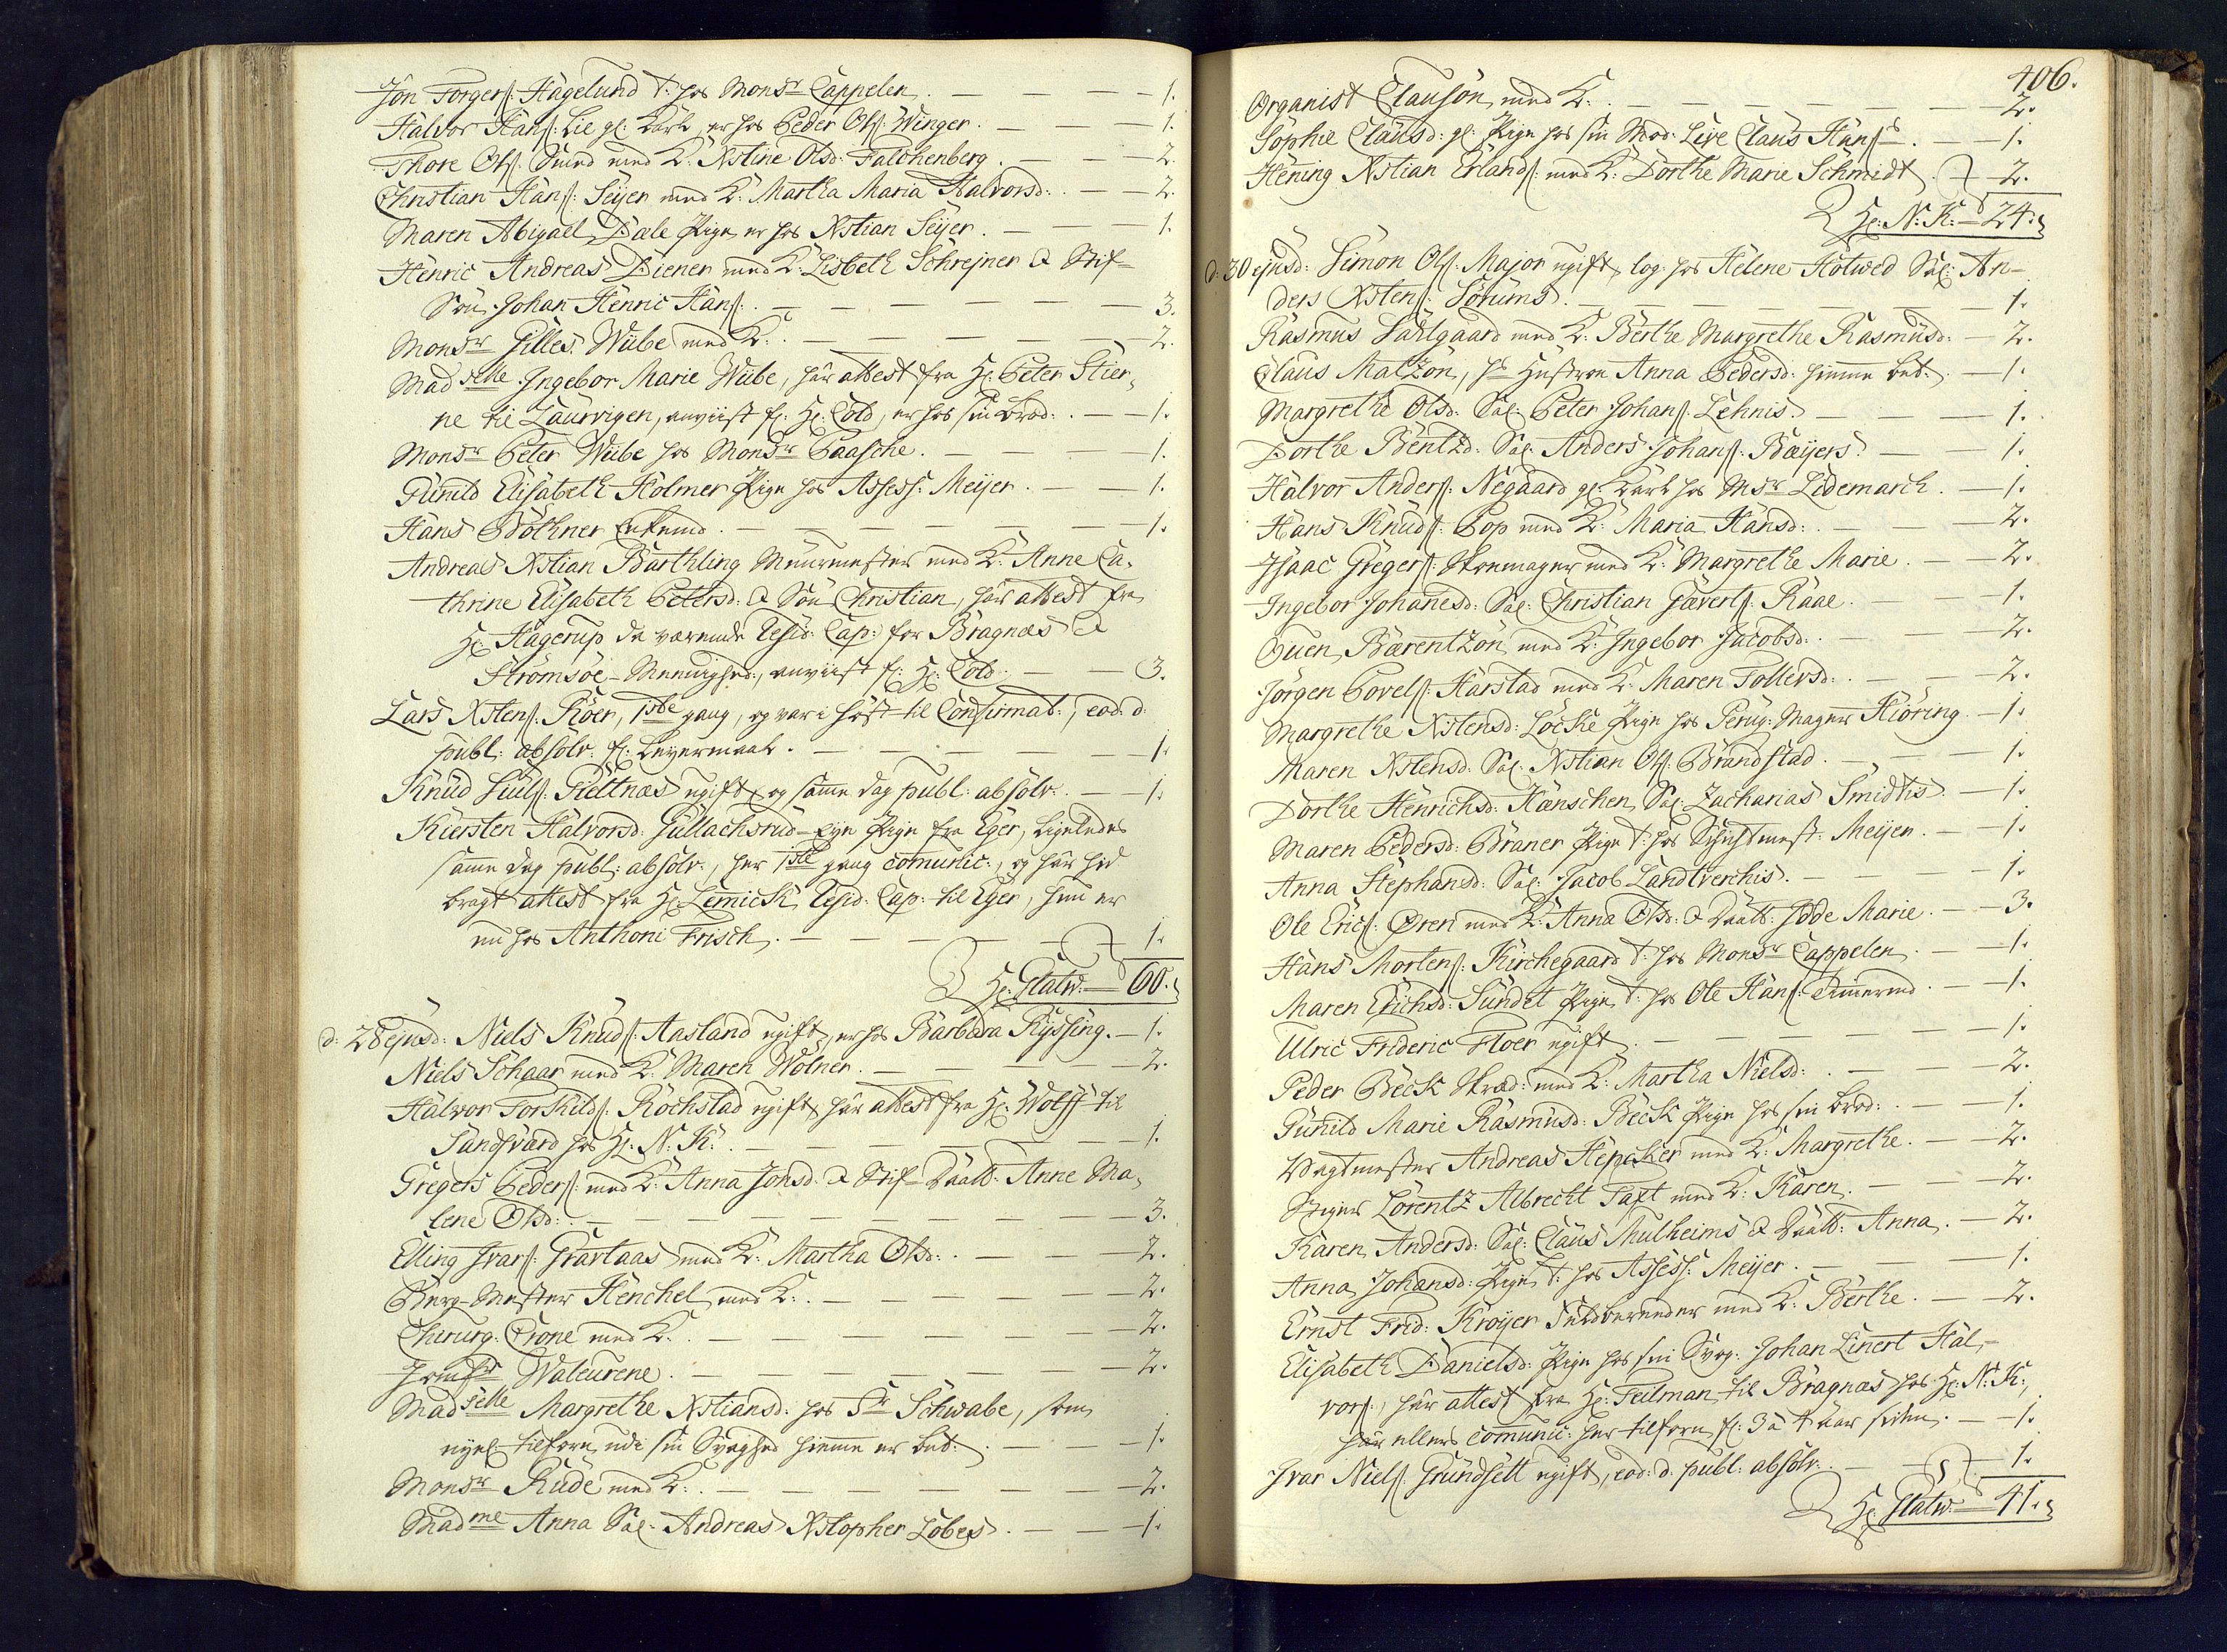 Jon Torgers: Hagelund t: hos Monsr Cappelen. — — — 1.
Halvor Hans: Lie gl: Karl, er hos Peder Ols: Winger. — — 1.
Thore Ols: Smed med K: Xstine Olsd: Falchenberg. — — 2.
Christian Hans: Seyer med K: Martha Maria Halvorsd: — — 2.
Maren Abigael Dale Pige, er hos Xstian Seyer. — — 1.
Henric Andreas Diener med K: Lisbeth Schrejner & Stif-
Søn Johan Henric Hans: — — — 3.
Monsr Gilles Wiibe med K: — — — 2.
Madselle Ingebor Marie Wiibe, har attest fra Hr: Peter Stier-
ne til Laurvigen, anviist f: Hr: Cold, er hos sin Brod: — 1.
Monsr Peter Wiibe hos Monsr Paasche. — — 1.
Gunild Elisabeth Holmer Pige hos Assess: Meijer. — — 1.
Hans Bøthner Enkemd. — — — 1.
Andreas Xstian Barthling Muurmester med K: Anne Ca-
thrine Elisabeth Petersd: & Søn Christian, har attest fra
Hr: Hagerup da værende Resid: Cap: for Bragnæs &
Strømsøe-Meenighed, anviist f: Hr: Cold: — — 3.
Lars Xstens: Röer, 1ste gang, og var i høst til Confirmat:, eod: d:
publ: absolv: f: Leyermaal. — — — 1.
Knud Juls: Gieltnæs ugift, og samme dag publ: absolv: — 1.
Kiersten Halvorsd: Gullachsrud-Eye Pige fra Eger, ligeledes
samme dag publ: absolv:, her 1ste gang comunic:, og har hid
bragt attest fra Hr: Lemick Resid: Cap: til Eger, hun er
nu hos Anthoni Frisch. — — — 1.
Hr: Glatv: — 60.
d: 28 ejusd: Niels Knuds: Aasland ugift, er hos Barbara Kyssing. — 1.
Niels Schaar med K: Maren Wølner. — — — 2.
Halvor Torkilds: Rochstad ugift, har attest fra Hr: Wolff til
Sandsværd hos Hr: N: K: — — — 1.
Gregers Peders: med K: Anna Jonsd: & Stif-Daatt: Anne Ma-
lene Olsd: — — — 3.
Elling Ivars: Gravlaas med K: Martha Olsd: — — 2.
Berg-Mester Henchel med K: — — — 2.
Chirurg: Crone med K: — — — 2.
Jomfr Waleurene. — — — 2.
Madselle Margrethe Xstiansd: hos Sr Schwabe, som
nyel: tilforn udi sin Svaghed hieme er bet: — — 1.
Monsr Rude med K: — — — 2.
Madme Anna Sal: Andreas Xstopher Løbes. — — 1.
406.
Organist Clauson med K: — — — 2.
Sophie Clausd: gl: Pige hos sin Mod: Live Claus Hans: — 1.
Hening Xstian Erlands: med K: Dorthe Marie Schmidt. 2.
Hr: N: K: — 24.
d: 30 ejusd: Simon Ols: Major ugift, log: hos Helene Hotwed Sal: An-
ders Xstens: Sørums. — — — 1.
Rasmus Dahlgaard med K: Berthe Margrethe Rasmusd: — 2.
Claus Matzon, hs Hustroe Anna Pedersd: hieme bet: — 1.
Margrethe Olsd: Sal: Peter Johans: Lehnis. — — 1.
Dorthe Bentzd: Sal: Anders Johans: Bæijers. — — 1.
Halvor Anders: Negaard gl: Karl hos Msr Ledemarch. — 1.
Hans Knuds: Pop med K: Maria Hansd: — — 2.
Isaac Gregers: Skoemager med K: Margrethe Marie. — — 2.
Ingebor Johanesd: Sal: Christian Gæverts: Raae. — — 1.
Ouen Bærentzön med K: Ingebor Jacobsd: — — 2.
Jørgen Povels: Harstad med K: Maren Tollevsd: — — 2.
Margrethe Xstensd: Løcke Pige hos Peruq: Mager Hiöring — 1.
Maren Xstensd: Sal: Xstian Ols: Brandstad. — — 1.
Dorthe Henrichsd: Hænschen Sal: Zacharias Smidtis. — 1.
Maren Pedersd: Braner Pige t: hos Schichtmest: Meijer. — 1.
Anna Stephansd: Sal: Jacob Landtverchis. — — 1.
Ole Erics: Ören med K: Anna Olsd: & Daatt: Jøde Marie. — 3.
Hans Mortens: Kirchegaard t: hos Monsr Cappelen. — 1.
Maren Erichsd: Sundet Pige t: hos Ole Hans: Timermd. — 1.
Ulric Frideric Floer ugift. — — — 1.
Peder Beck Skræd: med K: Martha Nielsd: — — 2.
Gunild Marie Rasmusd: Beck Pige hos sin Brod: — — 1.
Vagtmester Andreas Hencker med K: Margrethe. — 2.
Stiger Lorentz Albrecht Taft med K: Karen. — — 2.
Karen Andersd: Sal: Claus Mulheims & Daatt: Anna. — 2.
Anna Johansd: Pige t: hos Assess: Meijer. — — 1.
Ernst Frid: Kroyer Feldbereder med K: Berthe. — — 2.
Elisabeth Danielsd: Pige hos sin Svog: Johan Linert Hal-
vors:, har attest fra Hr: Feilman til Bragnæs hos Hr: N: K:,
har ellers comunic: her tilforn f: 3 a 4 aar siden. — 1.
Ivar Niels: Grundsett ugift, eod: d: publ: absolv: — 1.
Hr: Glatv: — 41.